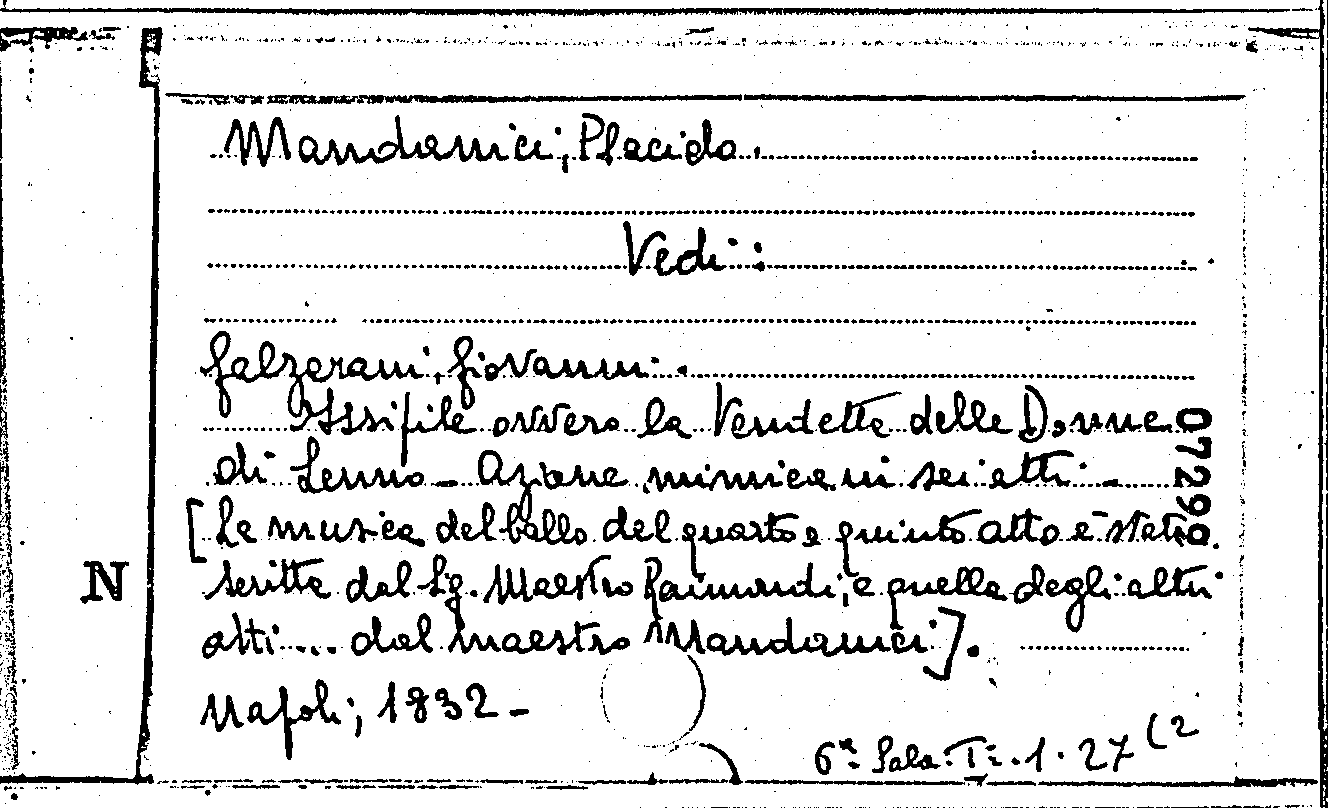 Mandanici, Placido.
Vedi:
Galzerani, Giovanni.
Issipile ovvero la Vendetta delle Donne
di Lenno - Azione mimica in sei atti -
[La musica del ballo del quarto e quinto atto è stata
scritta dal Sig. Maestro Raimondi, e quella degli altri
atti... dal maestro Mandanici].
Napoli, 1832 -
6ª Sala. Ti. 1. 27 (2
07299
N